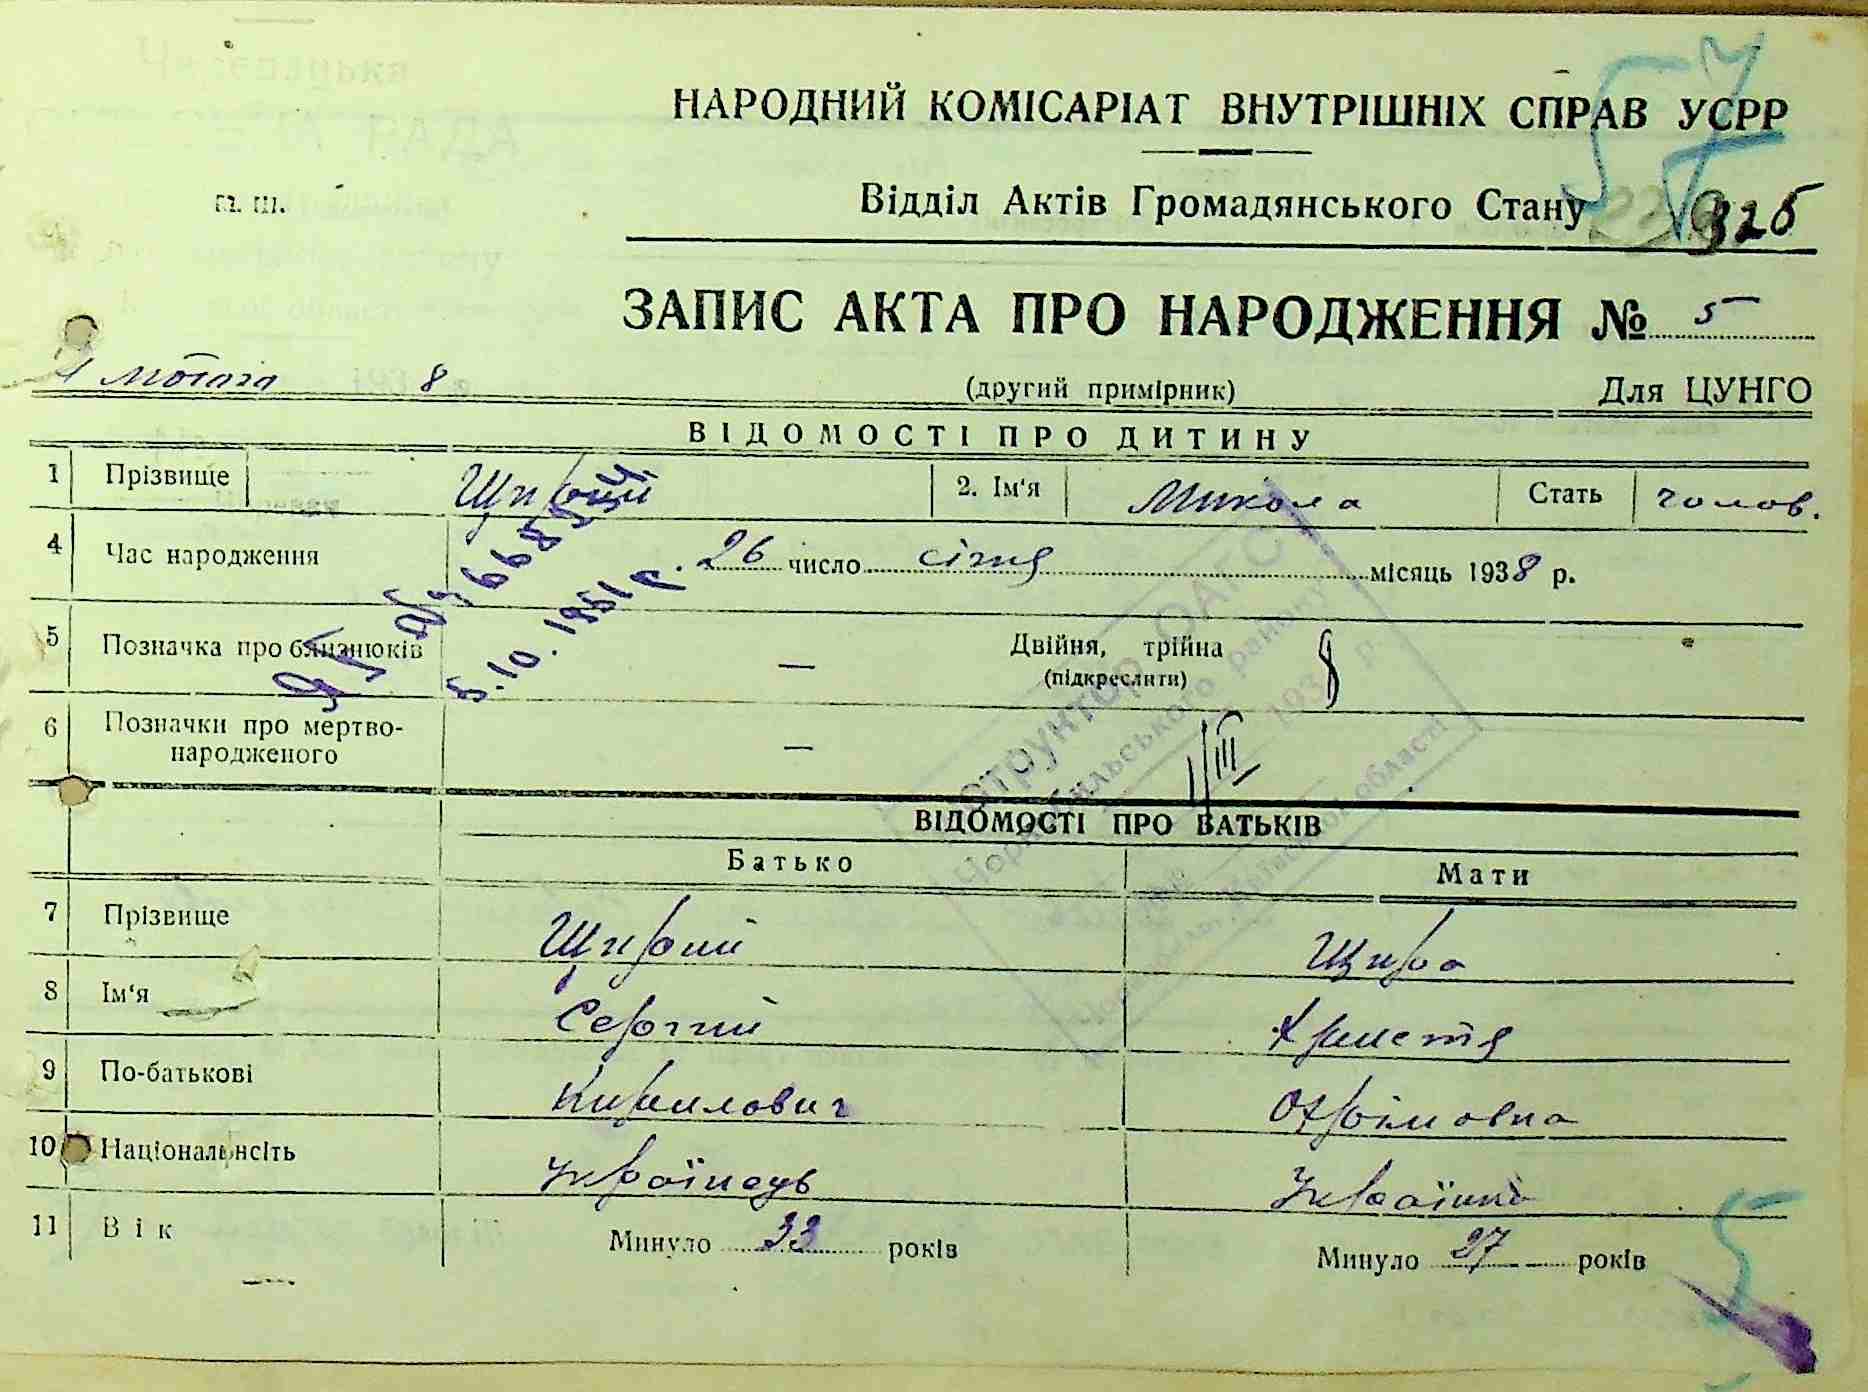 НАРОДНИЙ КОМІСАРІАТ ВНУТРІШНІХ СПРАВ УСРР
57
Відділ Актів Громадянського Стану
326
ЗАПИС АКТА ПРО НАРОДЖЕННЯ № 5
лютого 8
(другий примірник) Для ЦУНГО
ВІДОМОСТІ ПРО ДИТИНУ
1 Прізвище Щирий 2. Ім'я Микола Стать чолов.
4 Час народження 26 число січня місяць 1938 р.
5.10.1951 р.
5 Позначка про близнюків — Двійня, трійна
(підкреслити)
6 Позначки про мертво-
народженого —
Чорнобильського району
ВІДОМОСТІ ПРО БАТЬКІВ
Батько Мати
7 Прізвище Щирий Щира
8 Ім'я Сергий Христя
9 По-батькові Кирилович Охрімовна
10 Національність Українець Українка
11 Вік Минуло 33 років Минуло 27 років
5